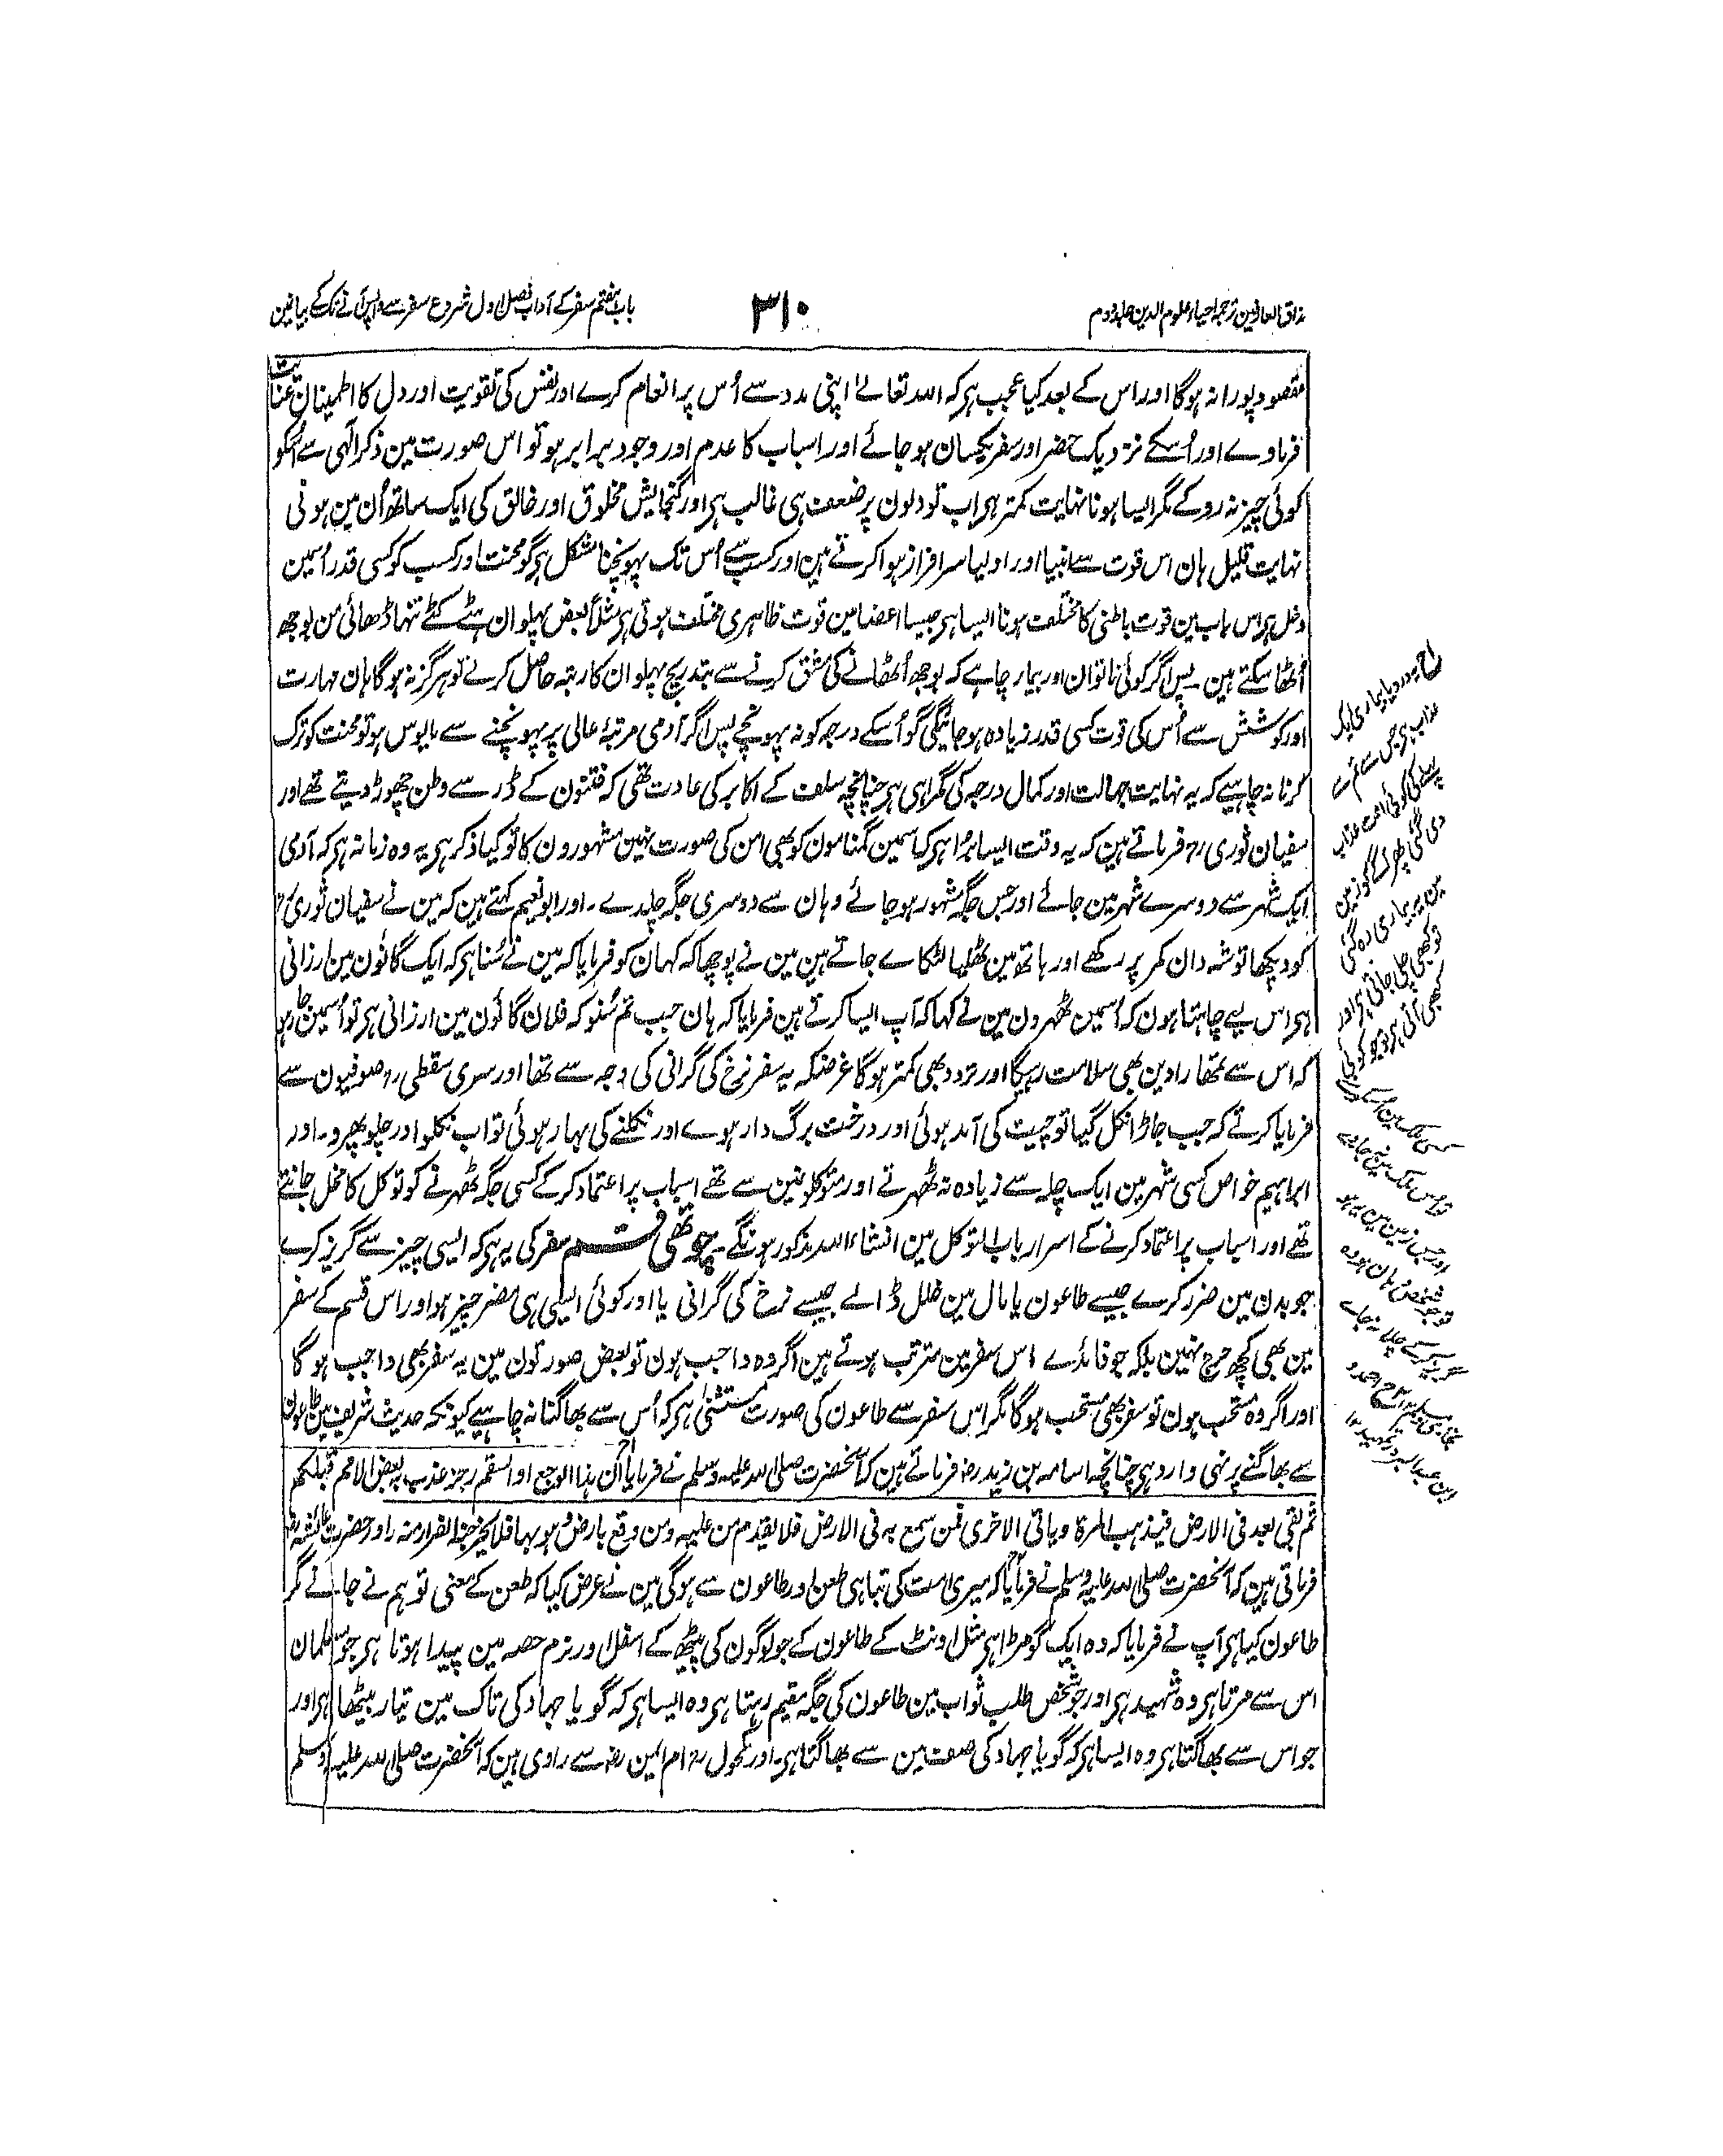 مذاق العارفین ترجمہ احیاء علوم الدین جلد دوم
۳۱۰
باب ہفتم سفر کے آداب فصل اول شروع سفر سے واپس آنے تک کے بیانمین
مقصود پورا نہ ہوگا اور اس کے بعد کیا عجب ہر کہ اللہ تعالےٰ اپنی مدد سے اُس پر انعام کرے اور نفس کی تقویت اور دل کا اطمینان عنایت
فرماوے اور اُسکے نزدیک حضر اور سفر یکسان ہو جائے اور اسباب کا عدم اور وجود برابر ہو تو اس صورت مین ذکر الٰہی سے اُسکو
کوئی چیز نہ روکے مگر ایسا ہونا نہایت کمتر ہر اب تو دلون پر ضعف ہی غالب ہر اور گنجایش مخلوق اور خالق کی ایک ساتھ اُن مین ہونی
نہایت قلیل ہان اس قوت سے انبیا اور اولیا سرافراز ہوا کرتے ہین اور کسب سے اُس تک پہونچنا مشکل ہر گو محنت اور کسب کو کسی قدر اُسمین
دخل ہر اس باب مین قوت باطنی کا مختلف ہونا ایسا ہر جیسا اعضا مین قوت ظاہری مختلف ہوتی ہر مثلاً بعض پہلوان ہٹے کٹے تنہا ڈھائی من بوجھ
اُٹھا سکتے ہین۔ پس اگر کوئی ناتوان اور بیمار چاہے کہ بوجھ اُٹھانے کی مشق کرنے سے بتدریج پہلوان کا رتبہ حاصل کرنے تو ہرگز نہ ہوگا ہان مہارت
اور کوشش سے اُس کی قوت کسی قدر زیادہ ہو جائیگی گو اُسکے درجہ کو نہ پہونچے پس اگر آدمی مرتبۂ عالی پر پہونچنے سے مایوس ہو تو محنت کو ترک
کرنا نہ چاہیے کہ یہ نہایت جہالت اور کمال درجہ کی گمراہی ہر چنانچہ سلف کے اکابر کی عادت تھی کہ فتنون کے ڈر سے وطن چھوڑ دیتے تھے اور
سفیان ثوری رح فرماتے ہین کہ یہ وقت ایسا برا ہر کہ اسمین گمنامون کو بھی امن کی صورت نہین مشہورون کا تو کیا ذکر ہر یہ وہ زمانہ ہر کہ آدمی
ایک شہر سے دوسرے شہر مین جائے اور جس جگہ مشہور ہو جائے وہان سے دوسری جگہ چلدے۔ اور ابو نعیم کہتے ہین کہ مین نے سفیان ثوری رح
کو دیکھا توشہ دان کمر پر رکھے اور ہاتھ مین ٹھلیا لٹکاے جاتے ہین مین نے پوچھا کہ کہان کو فرمایا کہ مین نے سُنا ہر کہ ایک گانوٴن مین ارزانی
ہر اس لیے چاہتا ہون کہ اُسمین ٹھہرون مین نے کہا کہ آپ ایسا کرتے ہین فرمایا کہ ہان جب تم سُنو کہ فلان گاوٴن مین ارزانی ہر تو اُسمین جا رہو
کہ اس سے تمھارا دین بھی سلامت رہیگا اور تردد بھی کمتر ہوگا غرضکہ یہ سفر نرخ کی گرانی کی وجہ سے تھا اور سری سقطی رح صوفیون سے
فرمایا کرتے کہ جب جاڑا نکل گیا تو چیت کی آمد ہوئی اور درخت برگ دار ہوے اور نکلنے کی بہار ہوئی تو اب نکلو اور چلو پھرو۔ اور
ابراہیم خواص کسی شہر مین ایک چلہ سے زیادہ نہ ٹھہرتے اور متوکلونین سے تھے اسباب پر اعتماد کرکے کسی جگہ ٹھہرنے کو توکل کا مخل جانتے
تھے اور اسباب پر اعتماد کرنے کے اسرار باب التوکل مین انشاء اللہ مذکور ہونگے۔ چوتھی قسم سفر کی یہ ہر کہ ایسی چیز سے گریز کرے
جو بدن مین ضرر کرے جیسے طاعون یا مال مین خلل ڈالے جیسے نرخ کی گرانی یا اور کوئی ایسی ہی مضر چیز ہو اور اس قسم کے سفر
مین بھی کچھ حرج نہین بلکہ جو فائدے اس سفر مین مترتب ہوتے ہین اگر وہ واجب ہون تو بعض صورتون مین یہ سفر بھی واجب ہوگا
اور اگر وہ مستحب ہون تو سفر بھی مستحب ہوگا مگر اس سفر سے طاعون کی صورت مستثنیٰ ہر کہ اُس سے بھاگنا نہ چاہیے کیونکہ حدیث شریف مین طاعون
سے بھاگنے پر نہی وارد ہر چنانچہ اسامہ بن زید رض فرماتے ہین کہ آنحضرت صلی اللہ علیہ وسلم نے فرمایا ان ہذا الوجع او السقم رجز عذب بہ بعض الامم قبلکم
ثم بقی بعد فی الارض فیذہب المرة ویاتی الاخری فمن سمع بہ فی الارض فلا یقدمن علیہ ومن وقع بارض وہو بہا فلا یخرجنہ الفرار منہ۔ اور حضرت عائشہ رض
فرماتی ہین کہ آنحضرت صلی اللہ علیہ وسلم نے فرمایا کہ میری امت کی تباہی طعن اور طاعون سے ہوگی مین نے عرض کیا کہ طعن کے معنی تو ہم نے جانے مگر
طاعون کیا ہر آپ نے فرمایا کہ وہ ایک گومڑا ہر مثل اونٹ کے طاعون کے جو لوگون کی پیٹھ کے اسفل اور نرم حصہ مین پیدا ہوتا ہر جو مسلمان
اس سے مرتا ہر وہ شہید ہر اور جو شخص طلب ثواب مین طاعون کی جگہ مقیم رہتا ہر وہ ایسا ہر کہ گویا جہاد کی تاک مین تیار بیٹھا ہر اور
جو اس سے بھاگتا ہر وہ ایسا ہر کہ گویا جہاد کی صف مین سے بھاگتا ہر۔ اور مکحول رح ام ایمن رض سے راوی ہین کہ آنحضرت صلی اللہ علیہ وسلم
یہ درد یا بیماری ایک
عذاب ہر جس سے تم سے
پہلے کی کوئی امت عذاب
دی گئی پھر لوگو زمین
مین یہ بیماری رہ گئی
تو کبھی چلی جاتی ہر اور
کبھی آتی ہر تو جو کوئی
کسی ملک مین اُسکو سنے
تو اُس ملک مین نہ جاوے
اور جس زمین مین یہ ہو
تو جو شخص وہان ہو وہ
گریز کرکے چلا نہ جاے
بخاری و مسلم ۱۲